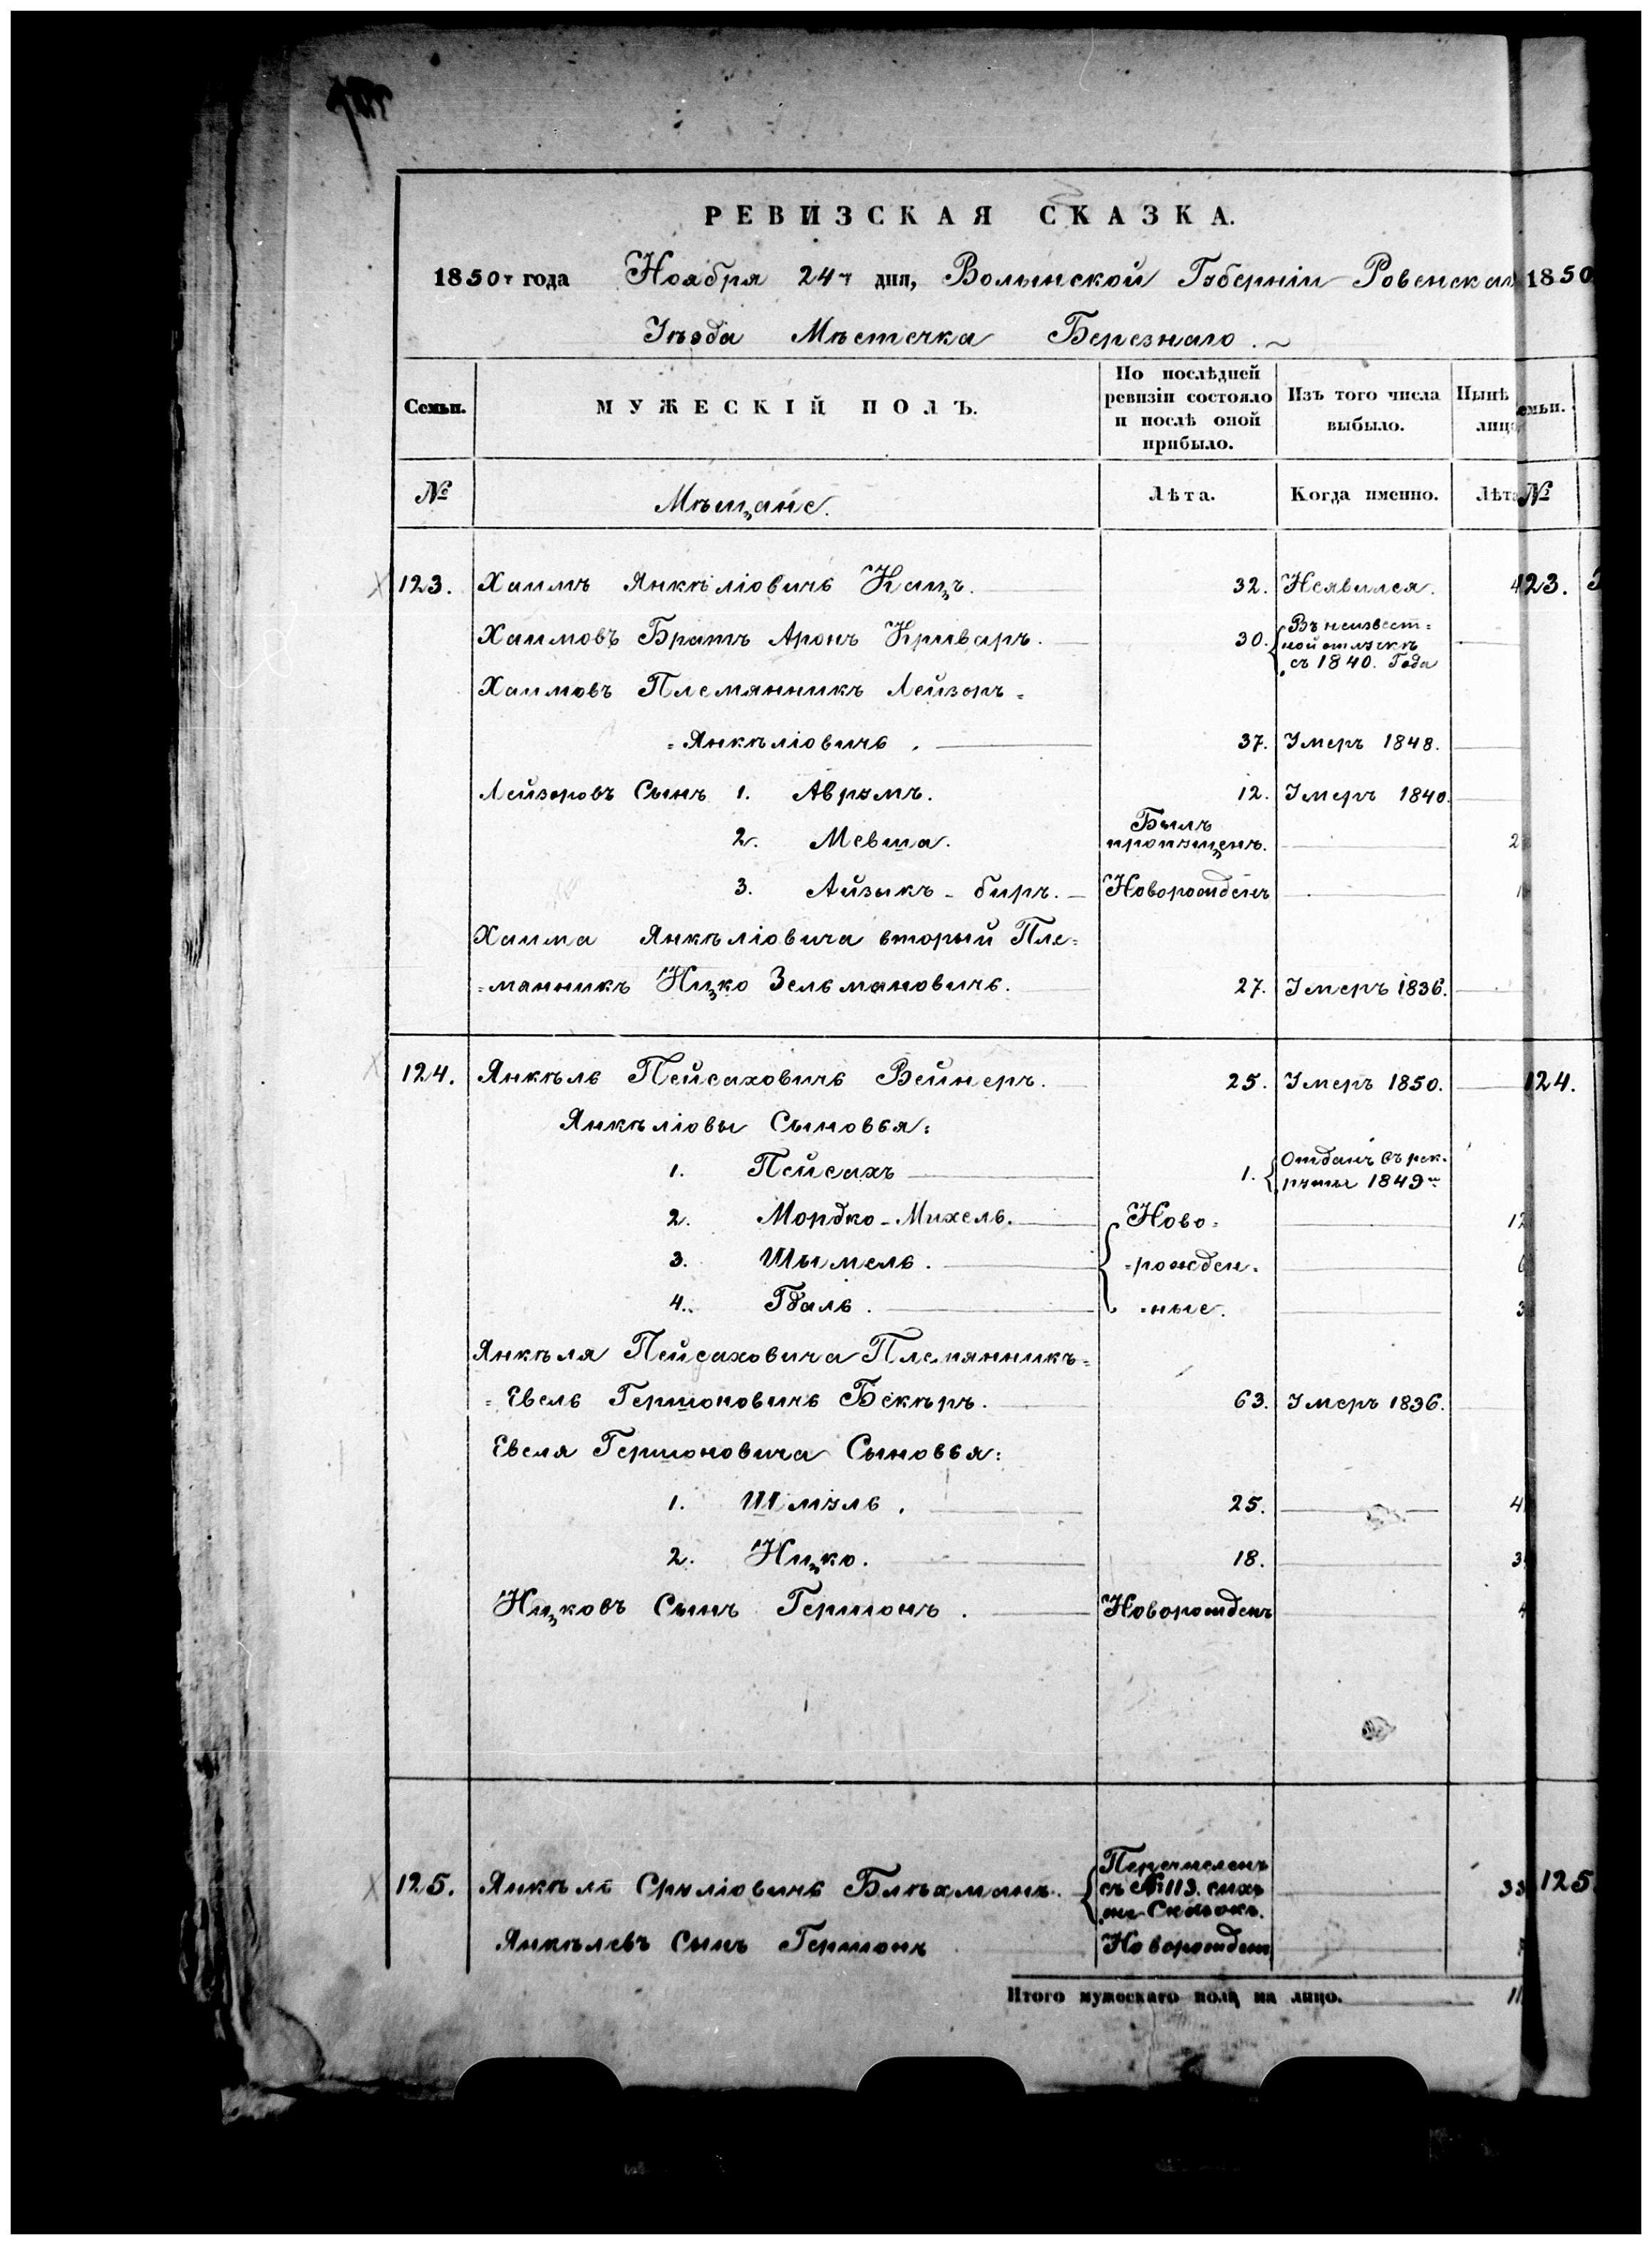 РЕВИЗСКАЯ СКАЗКА.
1850г года Ноября 24г дня, Волынской Губерніи Ровенскаго 1850
Уѣзда Мѣстечка Березнаго.
Семьи. МУЖЕСКІЙ ПОЛЪ. По послѣдней ревизіи состояло и послѣ оной прибыло. Изъ того числа выбыло. Нынѣ лицо емьи.
№ Мѣщане. Лѣта. Когда именно. Лѣта №
123. Хаимъ Янкѣліовичъ Кацъ. 32. Неявился. 4 123.
Хаимовъ Братъ Аронъ Криваръ. 30. Въ неизвест=
ной отлучкѣ
съ 1840. Года
Хаимовъ Племянникъ Лейзоръ=
=Янкѣліовичъ. 37. Умеръ 1848.
Лейзоровъ Сынъ 1. Аврумъ. 12. Умеръ 1840.
2. Мевша. Былъ пропущенъ. 2
3. Айзыкъ-биръ. Новорожденъ 1
Хаима Янкѣліовича вторый Пле=
=мянникъ Ицко Зельмановичъ. 27. Умеръ 1836.
124. Янкѣль Пейсаховичъ Вейнеръ. 25. Умеръ 1850. 124.
Янкѣліовы Сыновья:
1. Пейсахъ 1. Отданъ въ рек-
руты 1849го
2. Мордко-Михель. Ново= 12
3. Шымель. =рожден= 6
4. Гдаль. =ные. 3
Янкѣля Пейсаховича Племянникъ=
=Евель Гершоновичъ Бекѣръ. 63. Умеръ 1836.
Евеля Гершоновича Сыновья:
1. Шмуль. 25. 4
2. Ицко. 18. 3
Ицковъ Сынъ Гершонъ. Новорожденъ 4
125. Янкѣль Сруліовичъ Блѣхманъ. Перечисленъ
съ №113. сихъ
же Сказокъ. 33 125
Янкѣлевъ Сынъ Гершонъ Новорожден
Итого мужескаго пола на лицо. 11